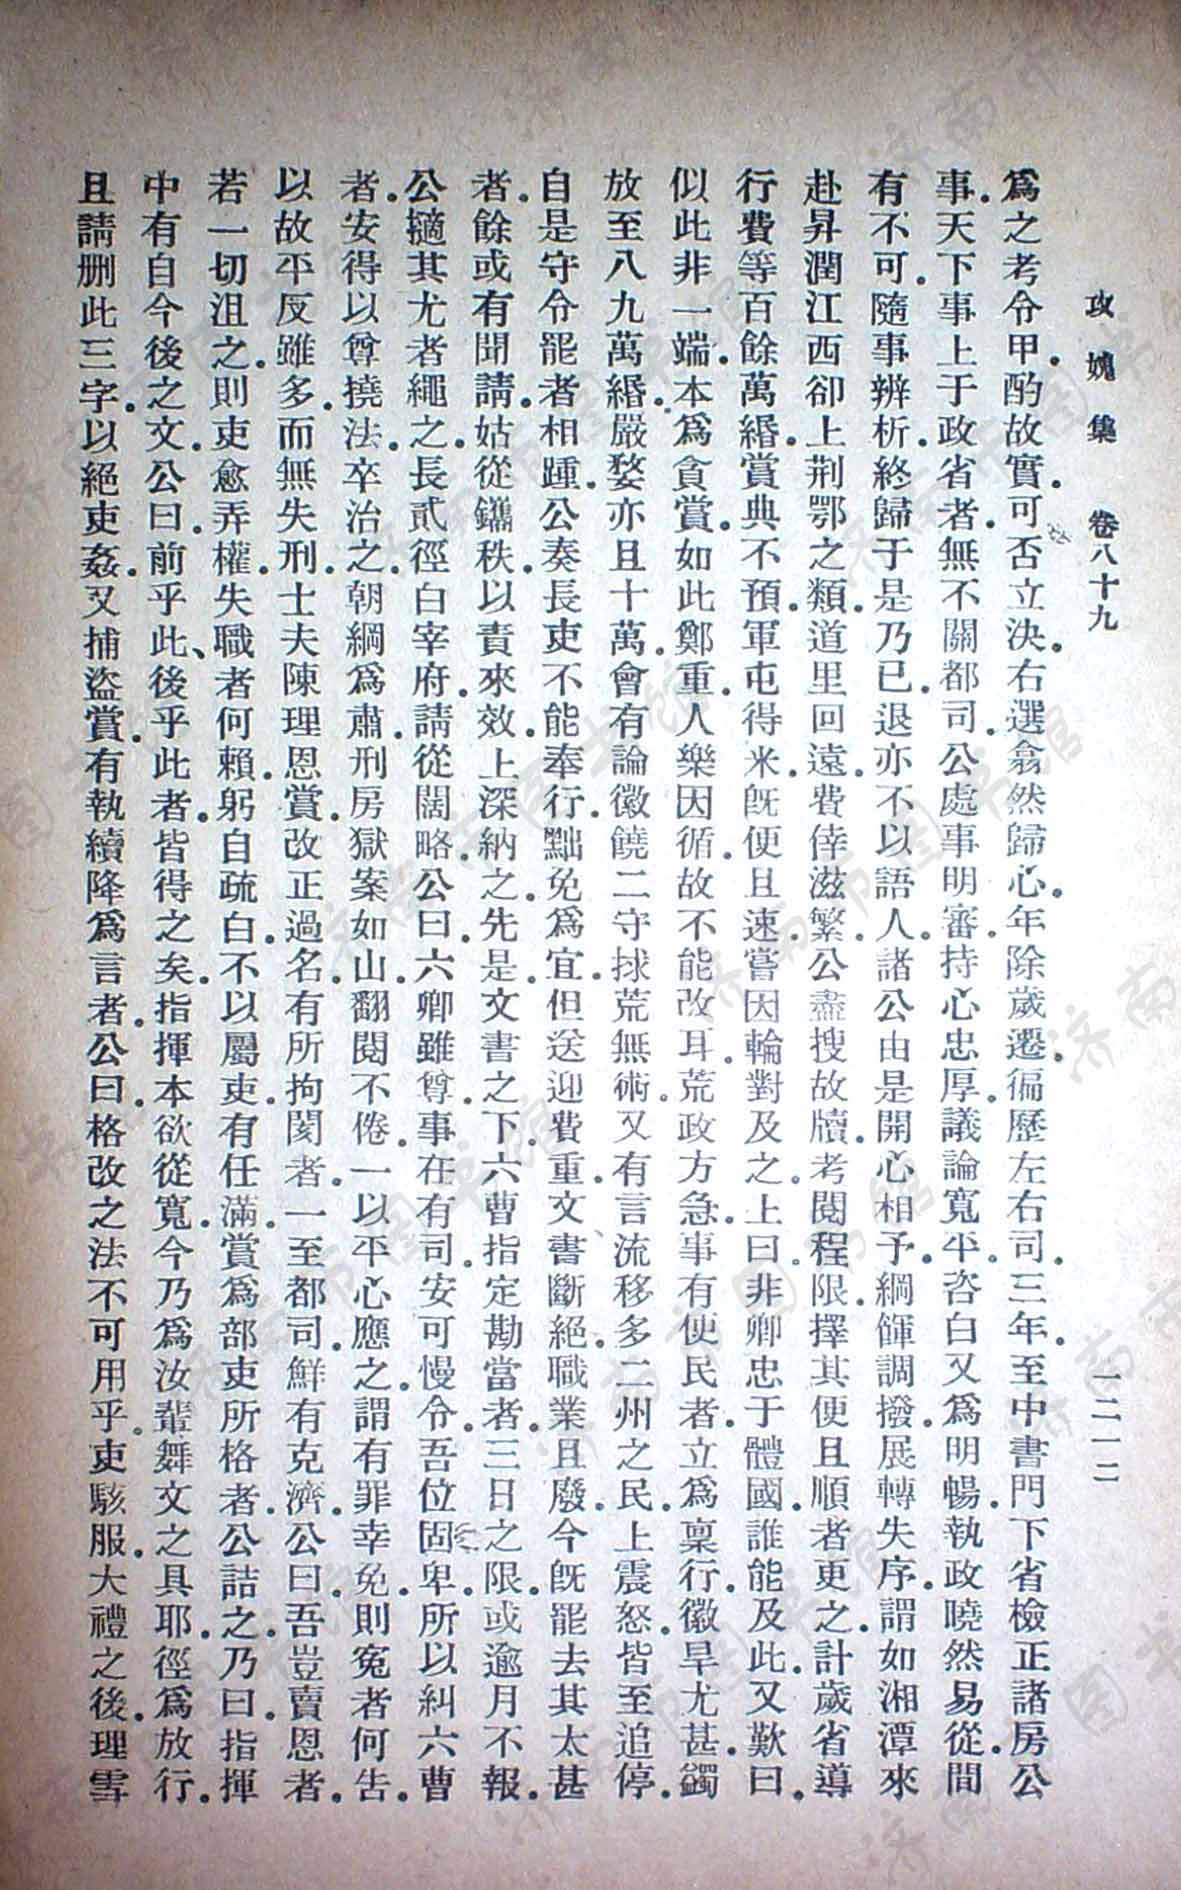 攻媿集 卷八十九 一二一二
爲之考令甲。酌故實。可否立決。右選翕然歸心。年除歲遷。徧歷左右司。三年。至中書門下省檢正諸房公
事。天下事上于政省者。無不關都司。公處事明審。持心忠厚。議論寬平。咨白又爲明暢。執政曉然易從。間
有不可。隨事辨析。終歸于是乃已。退亦不以語人。諸公由是開心相予。綱餫調撥。展轉失序。謂如湘潭來
赴昇潤江西卻上荆鄂之類。道里回遠。費倖滋繁。公盡搜故牘。考閱程限。擇其便且順者更之。計歲省導
行費等百餘萬緡。賞典不預。軍屯得米。旣便且速。嘗因輪對及之。上曰。非卿忠于體國。誰能及此。又歎曰。
似此非一端。本爲貪賞。如此鄭重。人樂因循。故不能改耳。荒政方急。事有便民者。立爲稟行。徽旱尤甚。蠲
放至八九萬緡。嚴婺亦且十萬。會有論徽饒二守捄荒無術。又有言流移多二州之民。上震怒。皆至追停。
自是守令罷者相踵。公奏長吏不能奉行。黜免爲宜。但送迎費重。文書斷絕。職業且廢。今旣罷去其太甚
者。餘或有聞。請姑從鐫秩。以責來效。上深納之。先是。文書之下。六曹指定勘當者。三日之限。或逾月不報。
公擿其尤者繩之。長貳徑白宰府。請從闊略。公曰。六卿雖尊。事在有司。安可慢令。吾位固卑。所以糾六曹
者。安得以尊撓法。卒治之。朝綱爲肅。刑房獄案如山。翻閱不倦。一以平心應之。謂有罪幸免。則寃者何告。
以故平反雖多。而無失刑。士夫陳理恩賞。改正過名。有所拘閡者。一至都司。鮮有克濟。公曰。吾豈賣恩者。
若一切沮之。則吏愈弄權。失職者何賴。躬自疏白。不以屬吏。有任滿。賞爲部吏所格者。公詰之。乃曰。指揮
中有自今後之文。公曰。前乎此、後乎此者。皆得之矣。指揮本欲從寬。今乃爲汝輩舞文之具耶。徑爲放行。
且請删此三字。以絕吏姦。又捕盜賞。有執續降爲言者。公曰。格改之法不可用乎。吏駭服。大禮之後。理雪